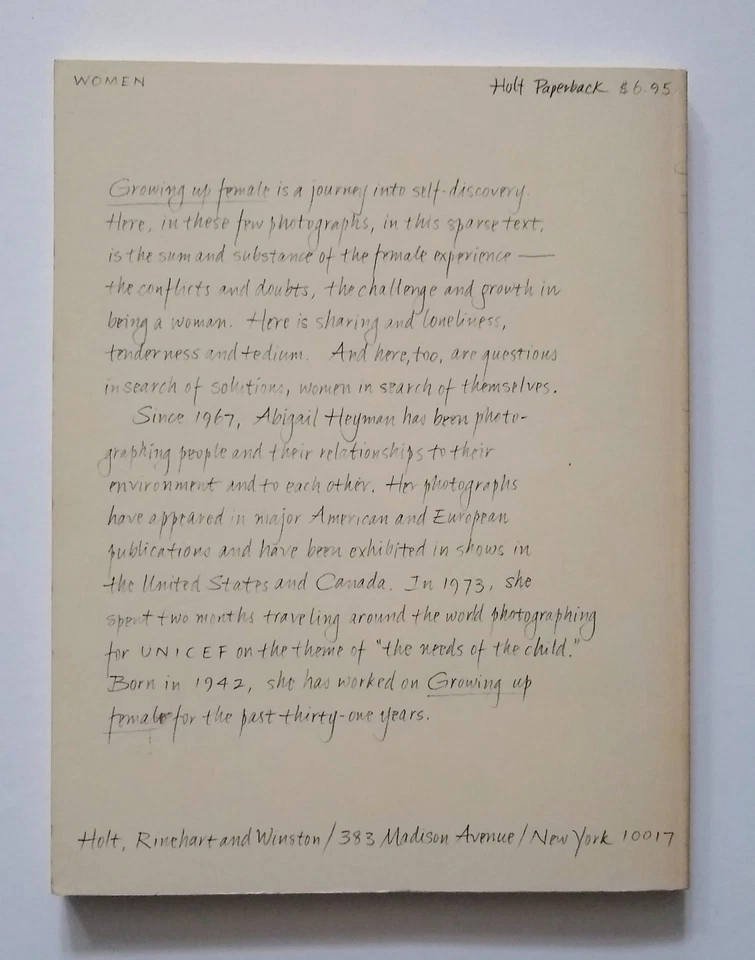 WOMEN
Holt Paperback $6.95
Growing up female is a journey into self-discovery.
Here, in these few photographs, in this sparse text,
is the sum and substance of the female experience —
the conflicts and doubts, the challenge and growth in
being a woman. Here is sharing and loneliness,
tenderness and tedium. And here, too, are questions
in search of solutions, women in search of themselves.
Since 1967, Abigail Heyman has been photo-
graphing people and their relationships to their
environment and to each other. Her photographs
have appeared in major American and European
publications and have been exhibited in shows in
the United States and Canada. In 1973, she
spent two months traveling around the world photographing
for UNICEF on the theme of "the needs of the child."
Born in 1942, she has worked on Growing up
female for the past thirty-one years.
Holt, Rinehart and Winston / 383 Madison Avenue / New York 10017